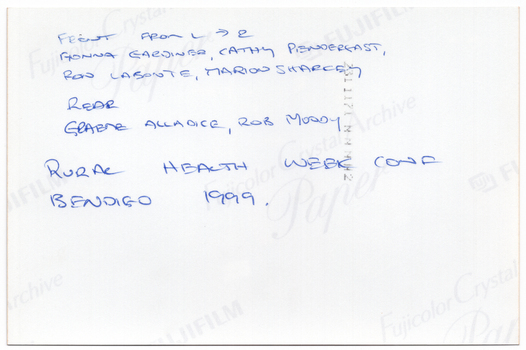 FRONT FROM L → R
DONNA GARDINER, CATHY PENDERGAST,
RON LABONTE, MARION SHARLEY
REAR
GRAEME ALLADICE, ROB MOODY
RURAL HEALTH WEEK CONF
BENDIGO 1999.
Fujicolor Crystal Archive
Paper
FUJIFILM